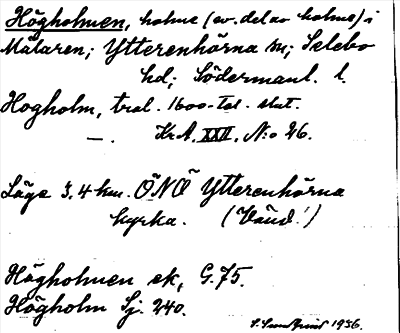 Högholmen, holme (ev. del av holme) i
Mälaren; Ytterenhörna sn; Selebo
hd; Södermanl. l.
Hogholm, trol. 1600-tal. slut.
—. Kr.A. XXII, N:o 26.
Läge 3,4 km. ÖNÖ Ytterenhörna
kyrka. (Vänd!)
Högholmen ek, G.75.
Högholm Sj. 240.
1936.